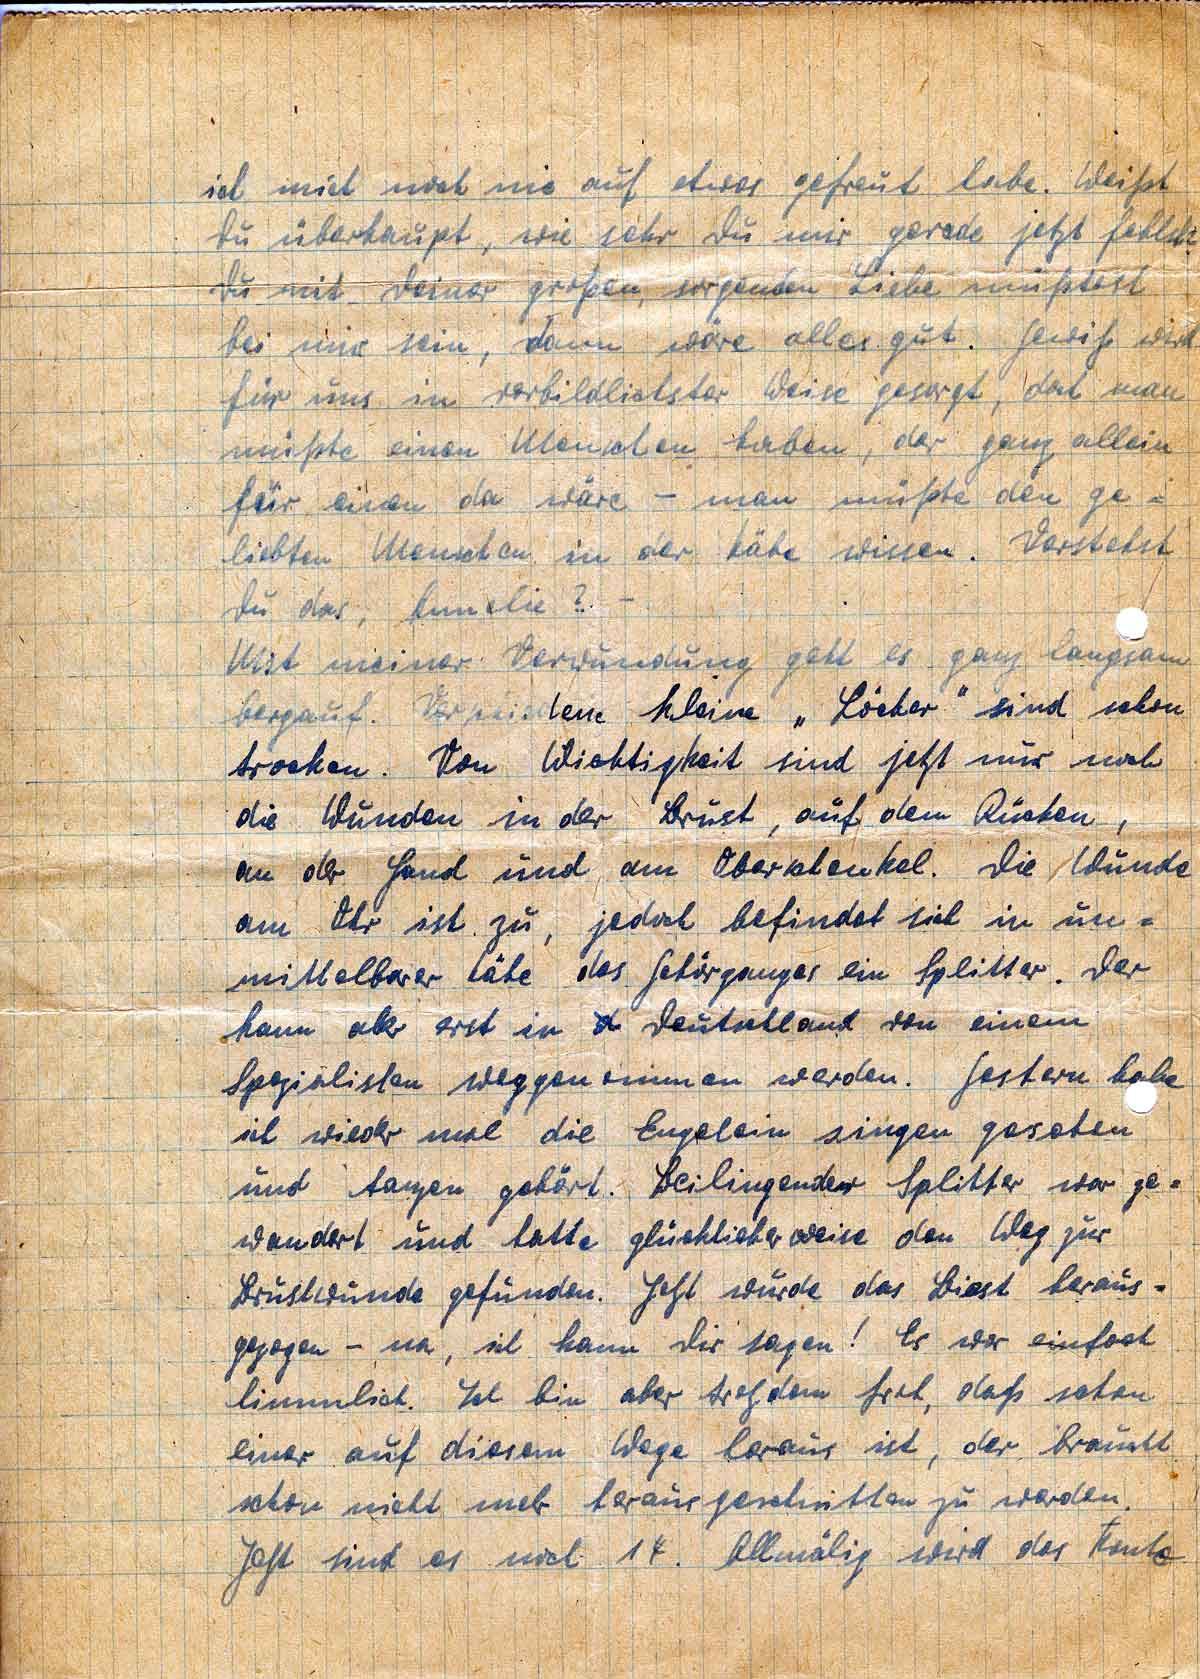 ich mich noch nie auf etwas gefreut habe. Weißt
Du überhaupt, wie sehr Du mir gerade jetzt fehlst?
Du mit Deiner großen, sorgenden Liebe müßtest
bei mir sein, dann wäre alles gut. Gewiß wird
für uns in vorbildlichster Weise gesorgt, doch man
müßte einen Menschen haben, der ganz allein
für einen da wäre – man müßte den ge=
liebten Menschen in der Nähe wissen. Verstehst
Du das, Annelie? –
Mit meiner Verwundung geht es ganz langsam
bergauf. Verschiedene kleine „Löcher" sind schon
trocken. Von Wichtigkeit sind jetzt nur noch
die Wunden in der Brust, auf dem Rücken,
an der Hand und am Oberschenkel. Die Wunde
am Ohr ist zu, jedoch befindet sich in un=
mittelbarer Nähe des Gehörganges ein Splitter. Der
kann aber erst in Deutschland von einem
Spezialisten weggenommen werden. Gestern habe
ich wieder mal die Engelein singen gesehen
und tanzen gehört. Beilingender Splitter war ge=
wandert und hatte glücklicherweise den Weg zur
Brustwunde gefunden. Jetzt wurde das Biest heraus=
gezogen – na, ich kann Dir sagen! Es war einfach
himmlich. Ich bin aber trotzdem froh, daß schon
einer auf diesem Wege heraus ist, der braucht
schon nicht mehr herausgeschnitten zu werden.
Jetzt sind es noch 14. Allmälig wird das Konto